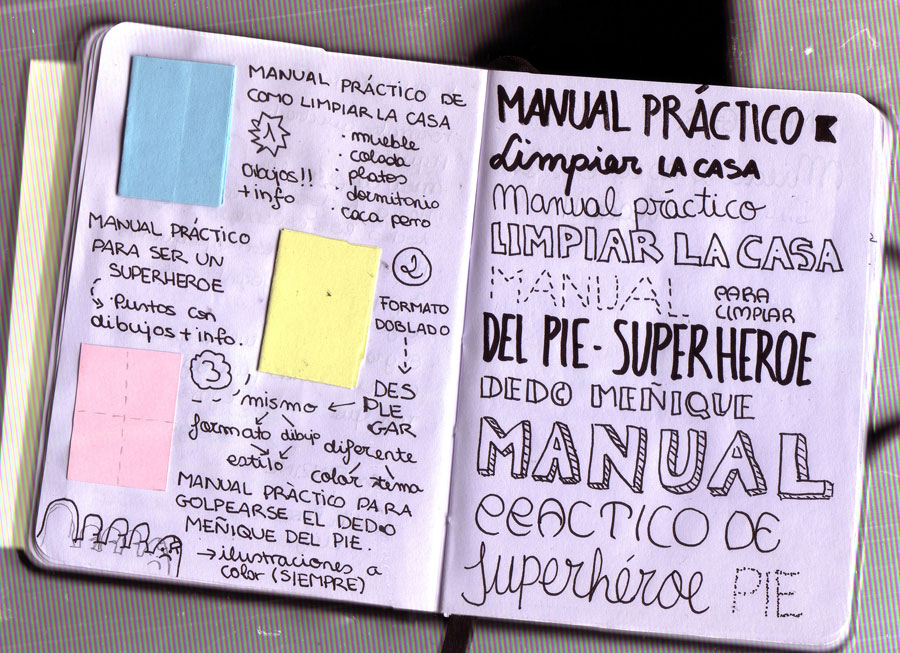 MANUAL PRÁCTICO DE
COMO LIMPIAR LA CASA
1
Dibujos!!
+ info
· mueble
· colada
· platos
· dormitorio
· caca perro
MANUAL PRÁCTICO
PARA SER UN
SUPERHEROE
Puntos con
dibujos + info.
2
FORMATO
DOBLADO
DES
PLE
GAR
3
mismo
formato dibujo diferente
estilo color tema
MANUAL PRÀCTICO PARA
GOLPEARSE EL DEDO
MEÑIQUE DEL PIE.
→ ilustraciones a
color (SIEMPRE)
MANUAL PRÁCTICO
Limpier LA CASA
Manual práctico
LIMPIAR LA CASA
MANUAL PARA
LIMPIAR
DEL PIE - SUPERHEROE
DEDO MEÑIQUE
MANUAL
PRACTICO DE
Superhéroe PIE